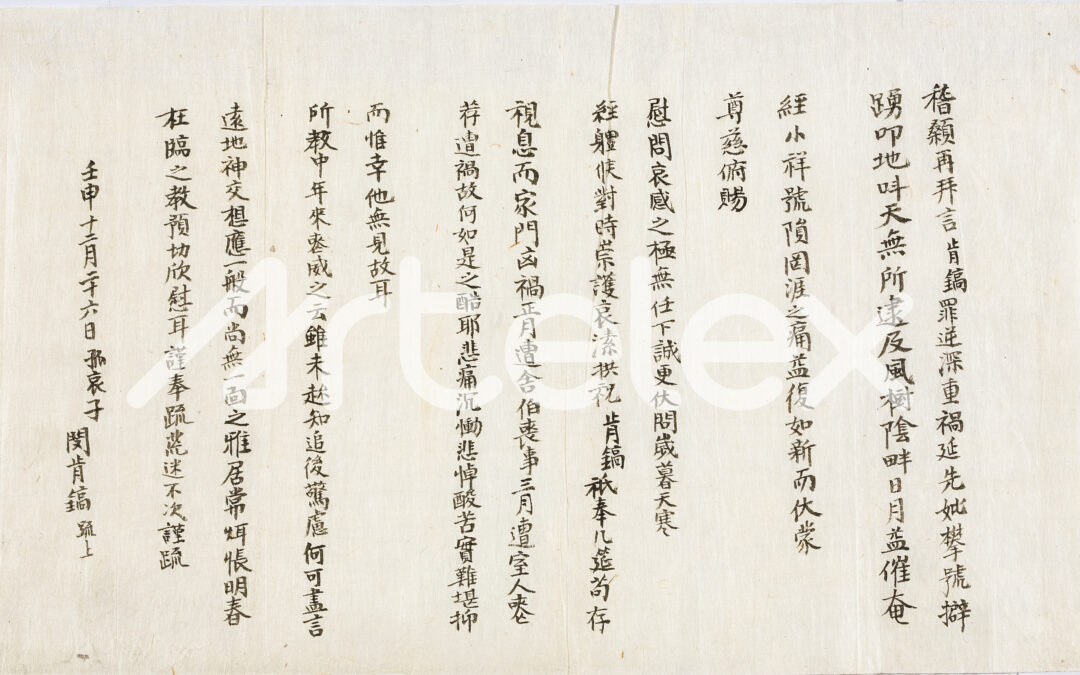 稽顙再拜言 肯鎬罪逆深重禍延先妣攀號擗
踴叩地叫天無所逮及風樹陰畔日月益催奄
經小祥號隕罔涯之痛益復如新而伏蒙
尊慈俯賜
慰問哀感之極無任下誠更伏問歲暮天寒
經體候對時崇護哀溸拱祝 肯鎬祇奉几筵苟存
視息而家門凶禍正月遭舍伯喪事三月遭室人
荐遭禍故何如是之酷耶悲痛沉慟悲悼酸苦實難堪抑
而惟幸他無見故耳
所教中年來 威之云雖未趂知追後驚慮何可盡言
遠地神交想應一般而尚無一面之雅居常 悵明春
枉臨之教預切欣慰耳謹奉疏荒迷不次謹疏
壬申十二月二十六日孤哀子 閔肯鎬 疏上
Artelex